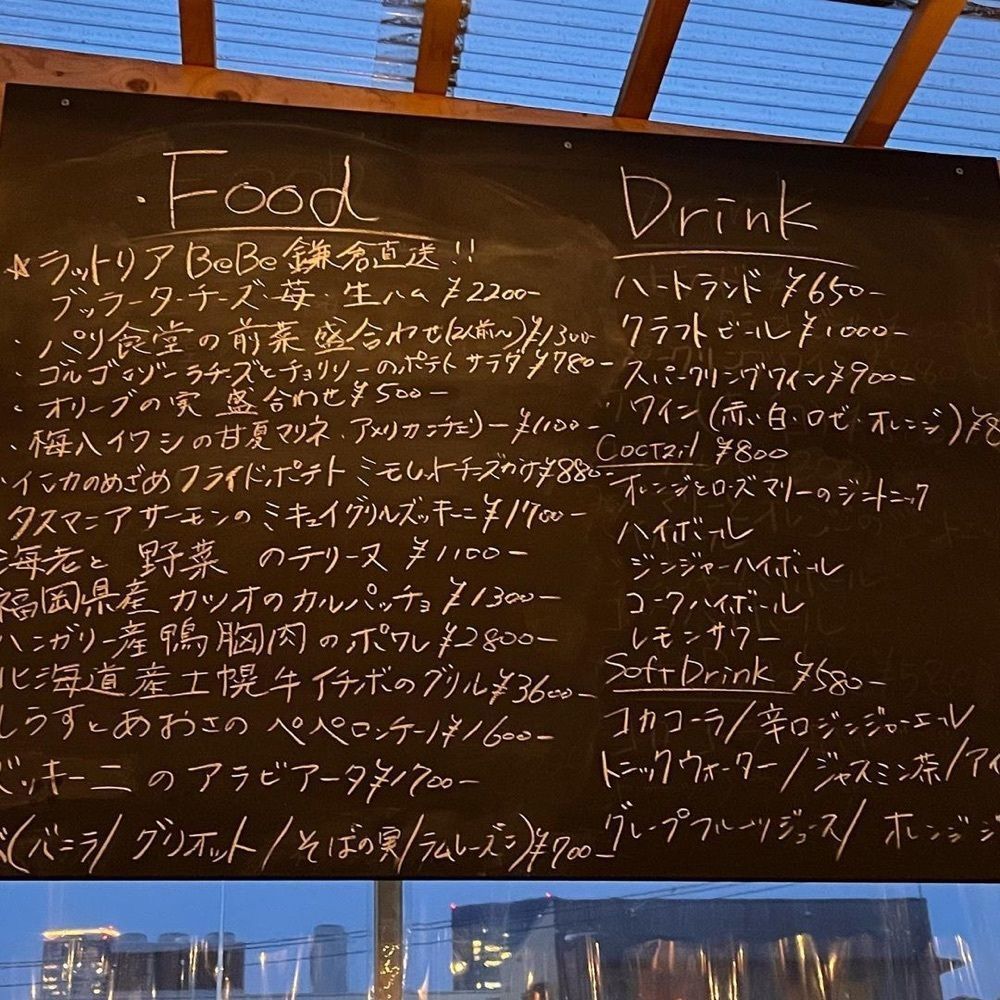 ・Food
☆ラットリア BeBe 鎌倉直送!!
ブッラータチーズ・苺 生ハム ¥2200-
・パリ食堂の前菜 盛合わせ(2人前~)¥1300-
・ゴルゴンゾーラチーズとチョリソーのポテトサラダ ¥780-
・オリーブの実 盛合わせ ¥500-
・梅八イワシの甘夏マリネ・アメリカンチェリー ¥1100-
・インカのめざめフライドポテト ミモレットチーズがけ ¥880-
タスマニアサーモンのミキュイグリルズッキーニ ¥1700-
海老と 野菜 のテリーヌ ¥1100-
福岡県産 カツオのカルパッチョ ¥1300-
ハンガリー産鴨胸肉のポワレ ¥2800-
北海道産士幌牛イチボのグリル ¥3600-
しらすとあおさの ペペロンチーノ ¥1600-
ズッキーニのアラビアータ ¥1700-
(バニラ/グリオット/そばの実/ラムレーズン)¥700-
Drink
ハートランド ¥650-
クラフトビール ¥1000-
スパークリングワイン ¥900-
ワイン(赤・白・ロゼ・オレンジ)¥8
Coctail ¥800
オレンジとローズマリーのジントニック
ハイボール
ジンジャーハイボール
コークハイボール
レモンサワー
Soft Drink ¥580-
コカコーラ/辛口ジンジャーエール
トニックウォーター/ジャスミン茶/アイ
グレープフルーツジュース/オレンジジ